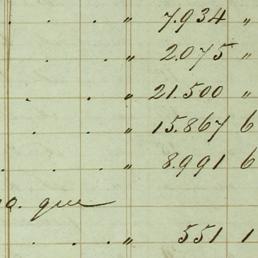 . . " 7.934 "
. . " 2.075 "
. . " 21.500 "
. . " 15.867 6
. . " 8.991 6
que
. . . " 551 1